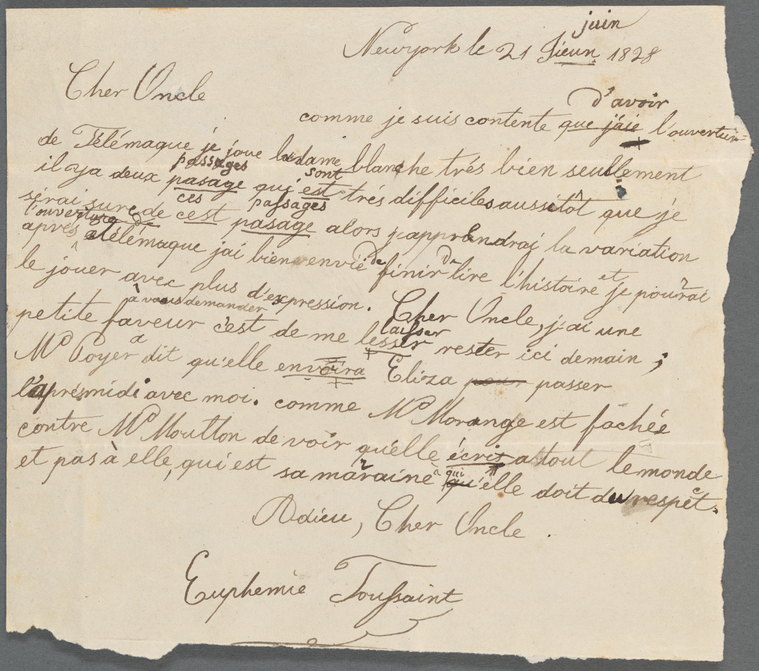 juin
Newyork le 21 Jieun 1828
Cher Oncle
d'avoir
comme je suis contente que j'aie l'ouverture
de Télémaque je joue la dame blanche trés bien seullement
passages sont
il ya deux pasage qui est trés difficiles aussitôt que je
ces passages
sérai sure de cest pasage alors j'apprendraj la variation
l'ouverture de
aprés télémaque jai bien envie de finir de lire l'histoire et je pourai
le jouer avec plus d'expression. Cher Oncle, j'ai une
à vous demander laisser
petite faveur c'est de me lesser rester ici demain ;
Me Poyer a dit qu'elle envoira Eliza pour passer
l'aprésmidi avec moi. comme Me Morange est fachée
contre Me Moulton de voir qu'elle écrit a tout le monde
à qui
et pas à elle, qui est sa maraine qu'elle doit du respect.
Adieu, Cher Oncle.
Euphemie Toussaint